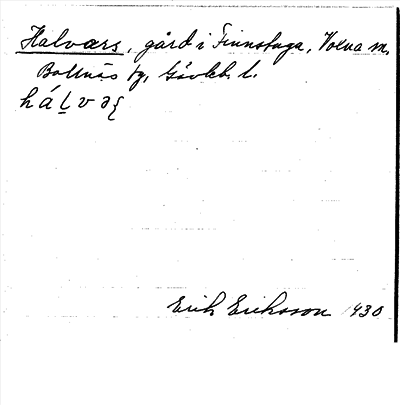 Halvars, gård i Finnstuga, Voxna sn,
Bollnäs tg, Gävleb. l.
hálvəʂ
Erik Eriksson 1930